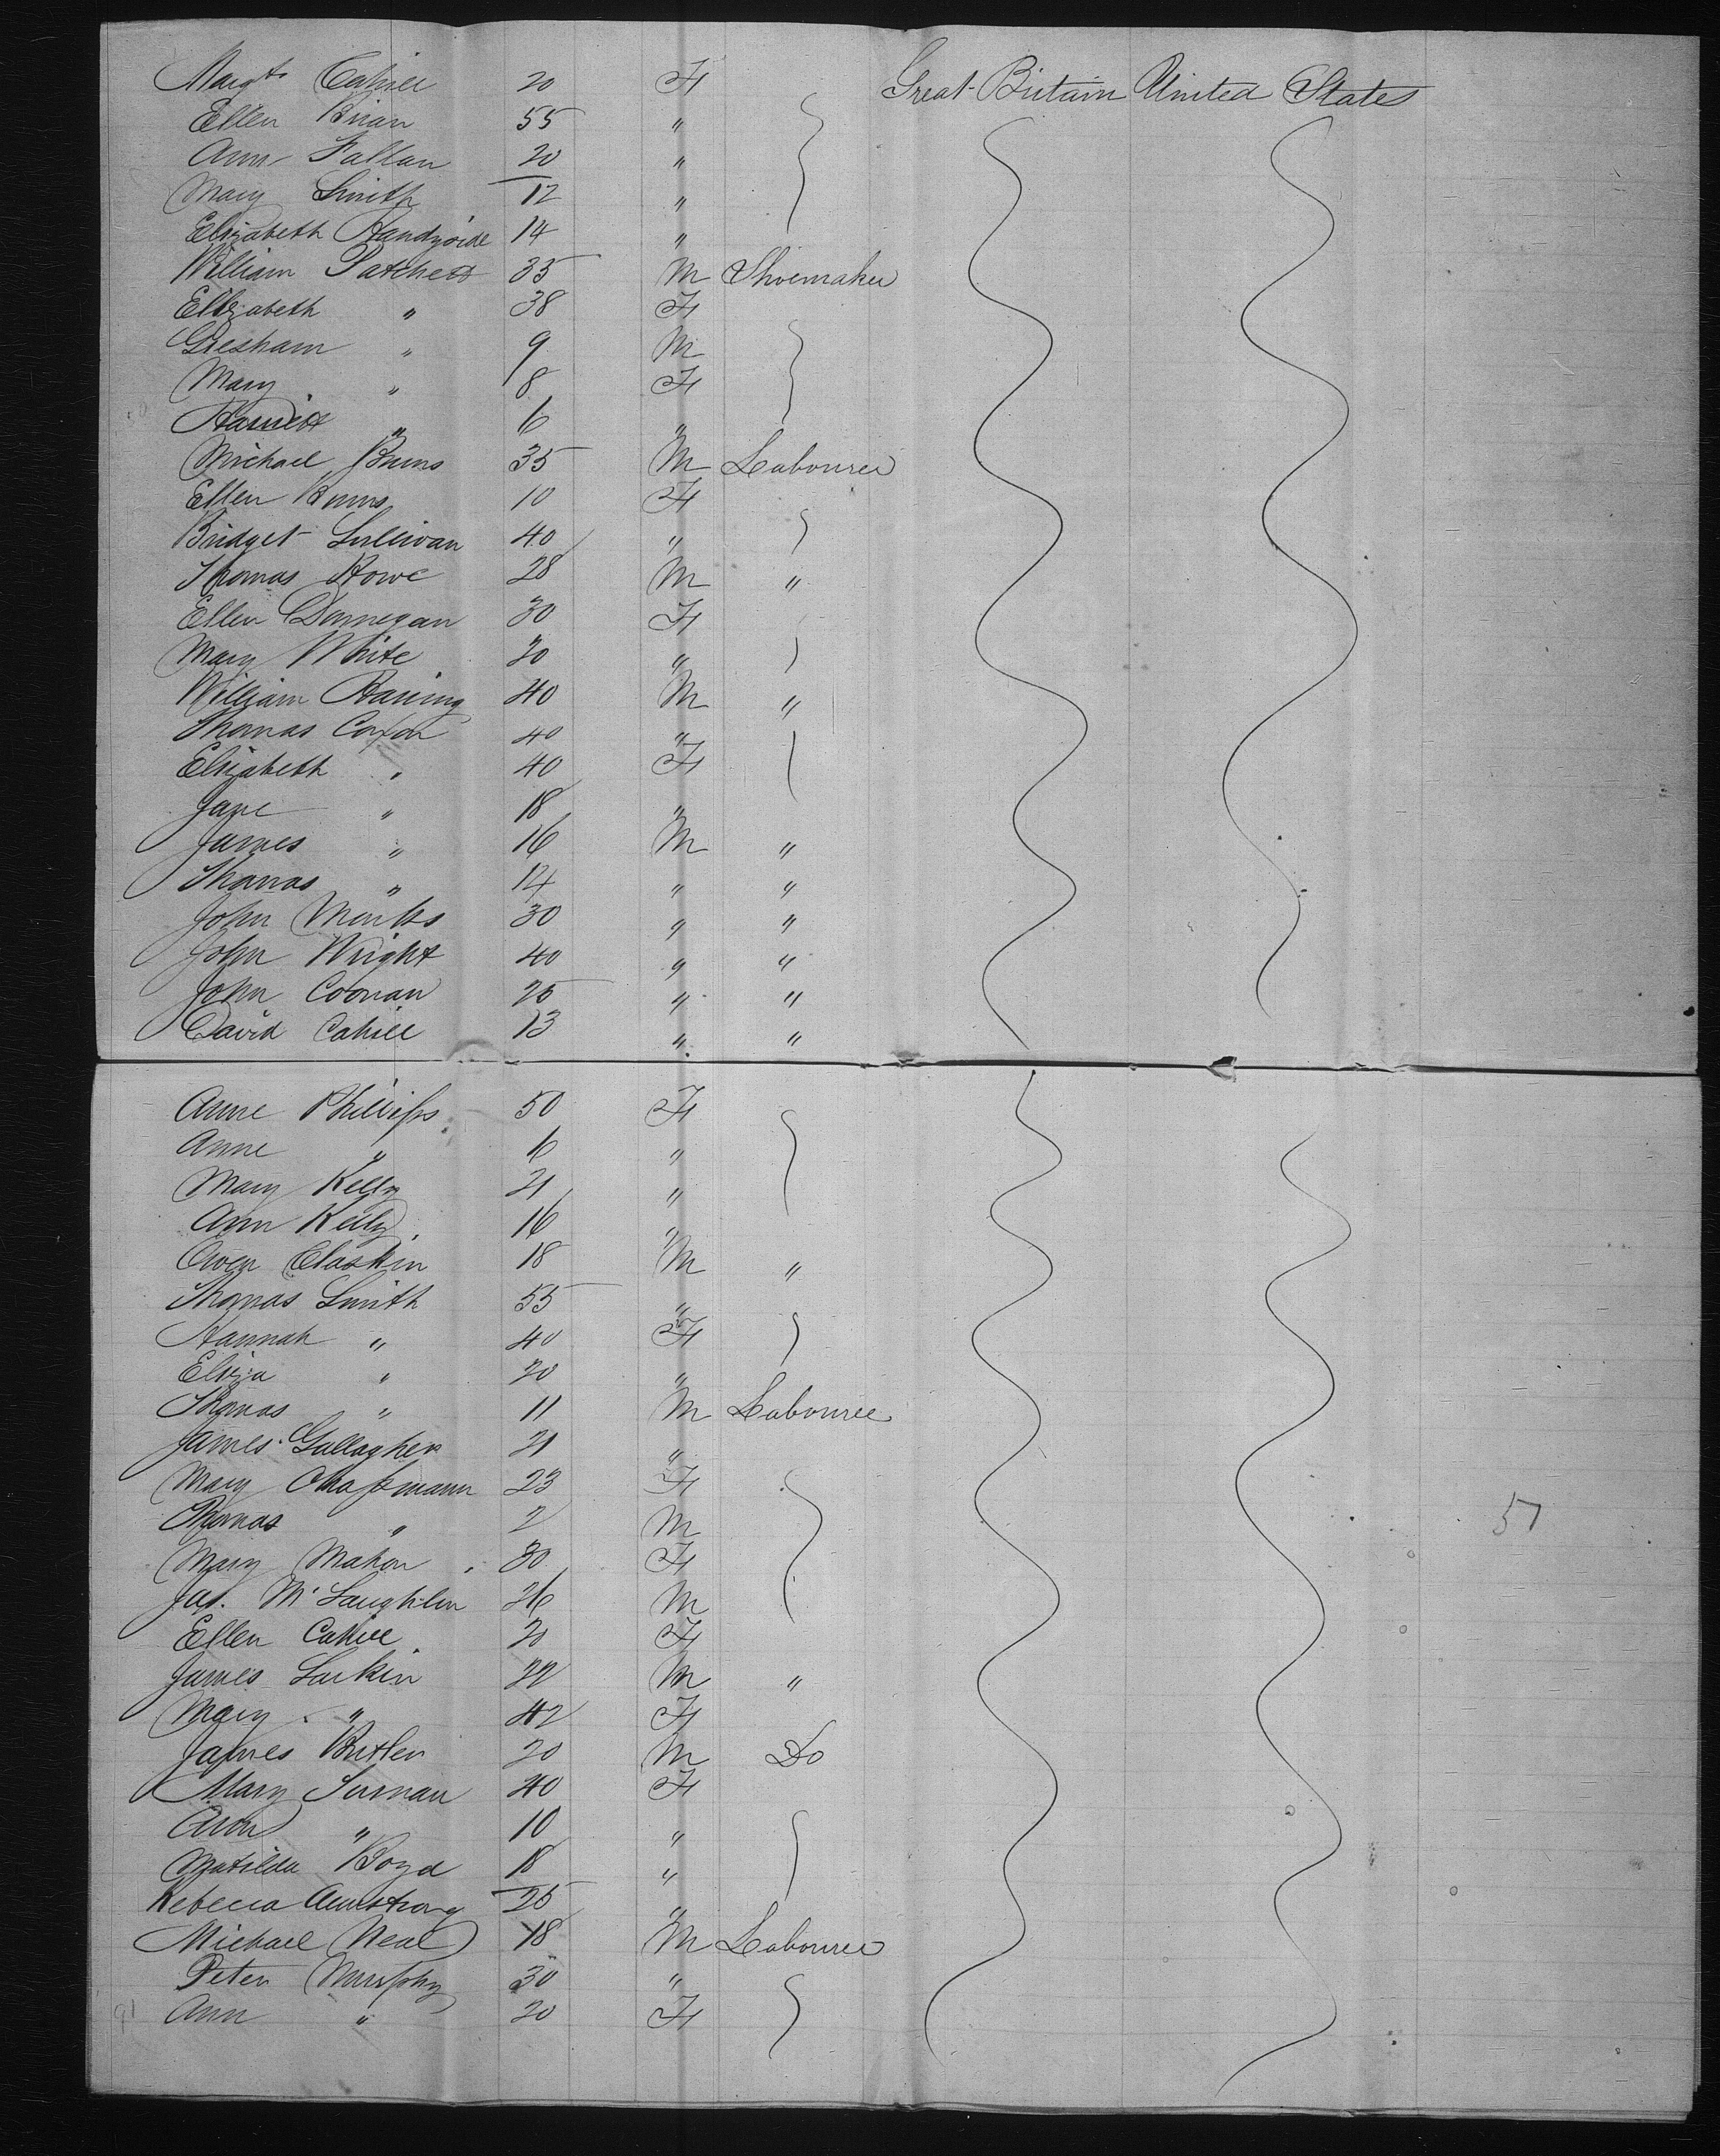 Margt Cahill 20 F Great Britain United States
Ellen Brian 55 "
Ann Fallan 20 "
Mary Smith 12 "
Elizabeth Handyside 14 "
William Patchett 35 M Shoemaker
Elizabeth " 38 F
Gresham " 9 M
Mary " 8 F
Harriett " 6 "
Michael Burns 35 M Labourer
Ellen Burns 10 F
Bridget Sullivan 40 "
Thomas Howe 28 M "
Ellen Donnegan 30 F
Mary White 20 "
William Haring 40 M "
Thomas Caxton 40 "
Elizabeth " 40 F
Jane " 18 "
James " 16 M "
Thomas " 14 " "
John Monks 30 " "
John Wright 40 " "
John Coonan 25 " "
David Cahill 13 " "
Anne Phillips 50 F
Anne " 6 "
Mary Kelly 21 "
Ann Kelly 16 "
Owen Claskin 18 M "
Thomas Smith 55 "
Hannah " 40 F
Eliza " 20 "
Thomas " 11 M Labourer
James Gallagher 21 "
Mary Chapmann 23 F
Thomas " 2 M
Mary Mahon 30 F
Jas. McLaughlin 26 M
Ellen Cahill 20 F
James Larkin 22 M "
Mary " 42 F
James Butler 20 M Do
Mary Surnan 40 F
" 10 "
Matilda Boyd 18 "
Rebecca Armstrong 25 "
Michael Neal 18 M Labourer
Peter Murphy 30 "
Ann " 20 F
91
57